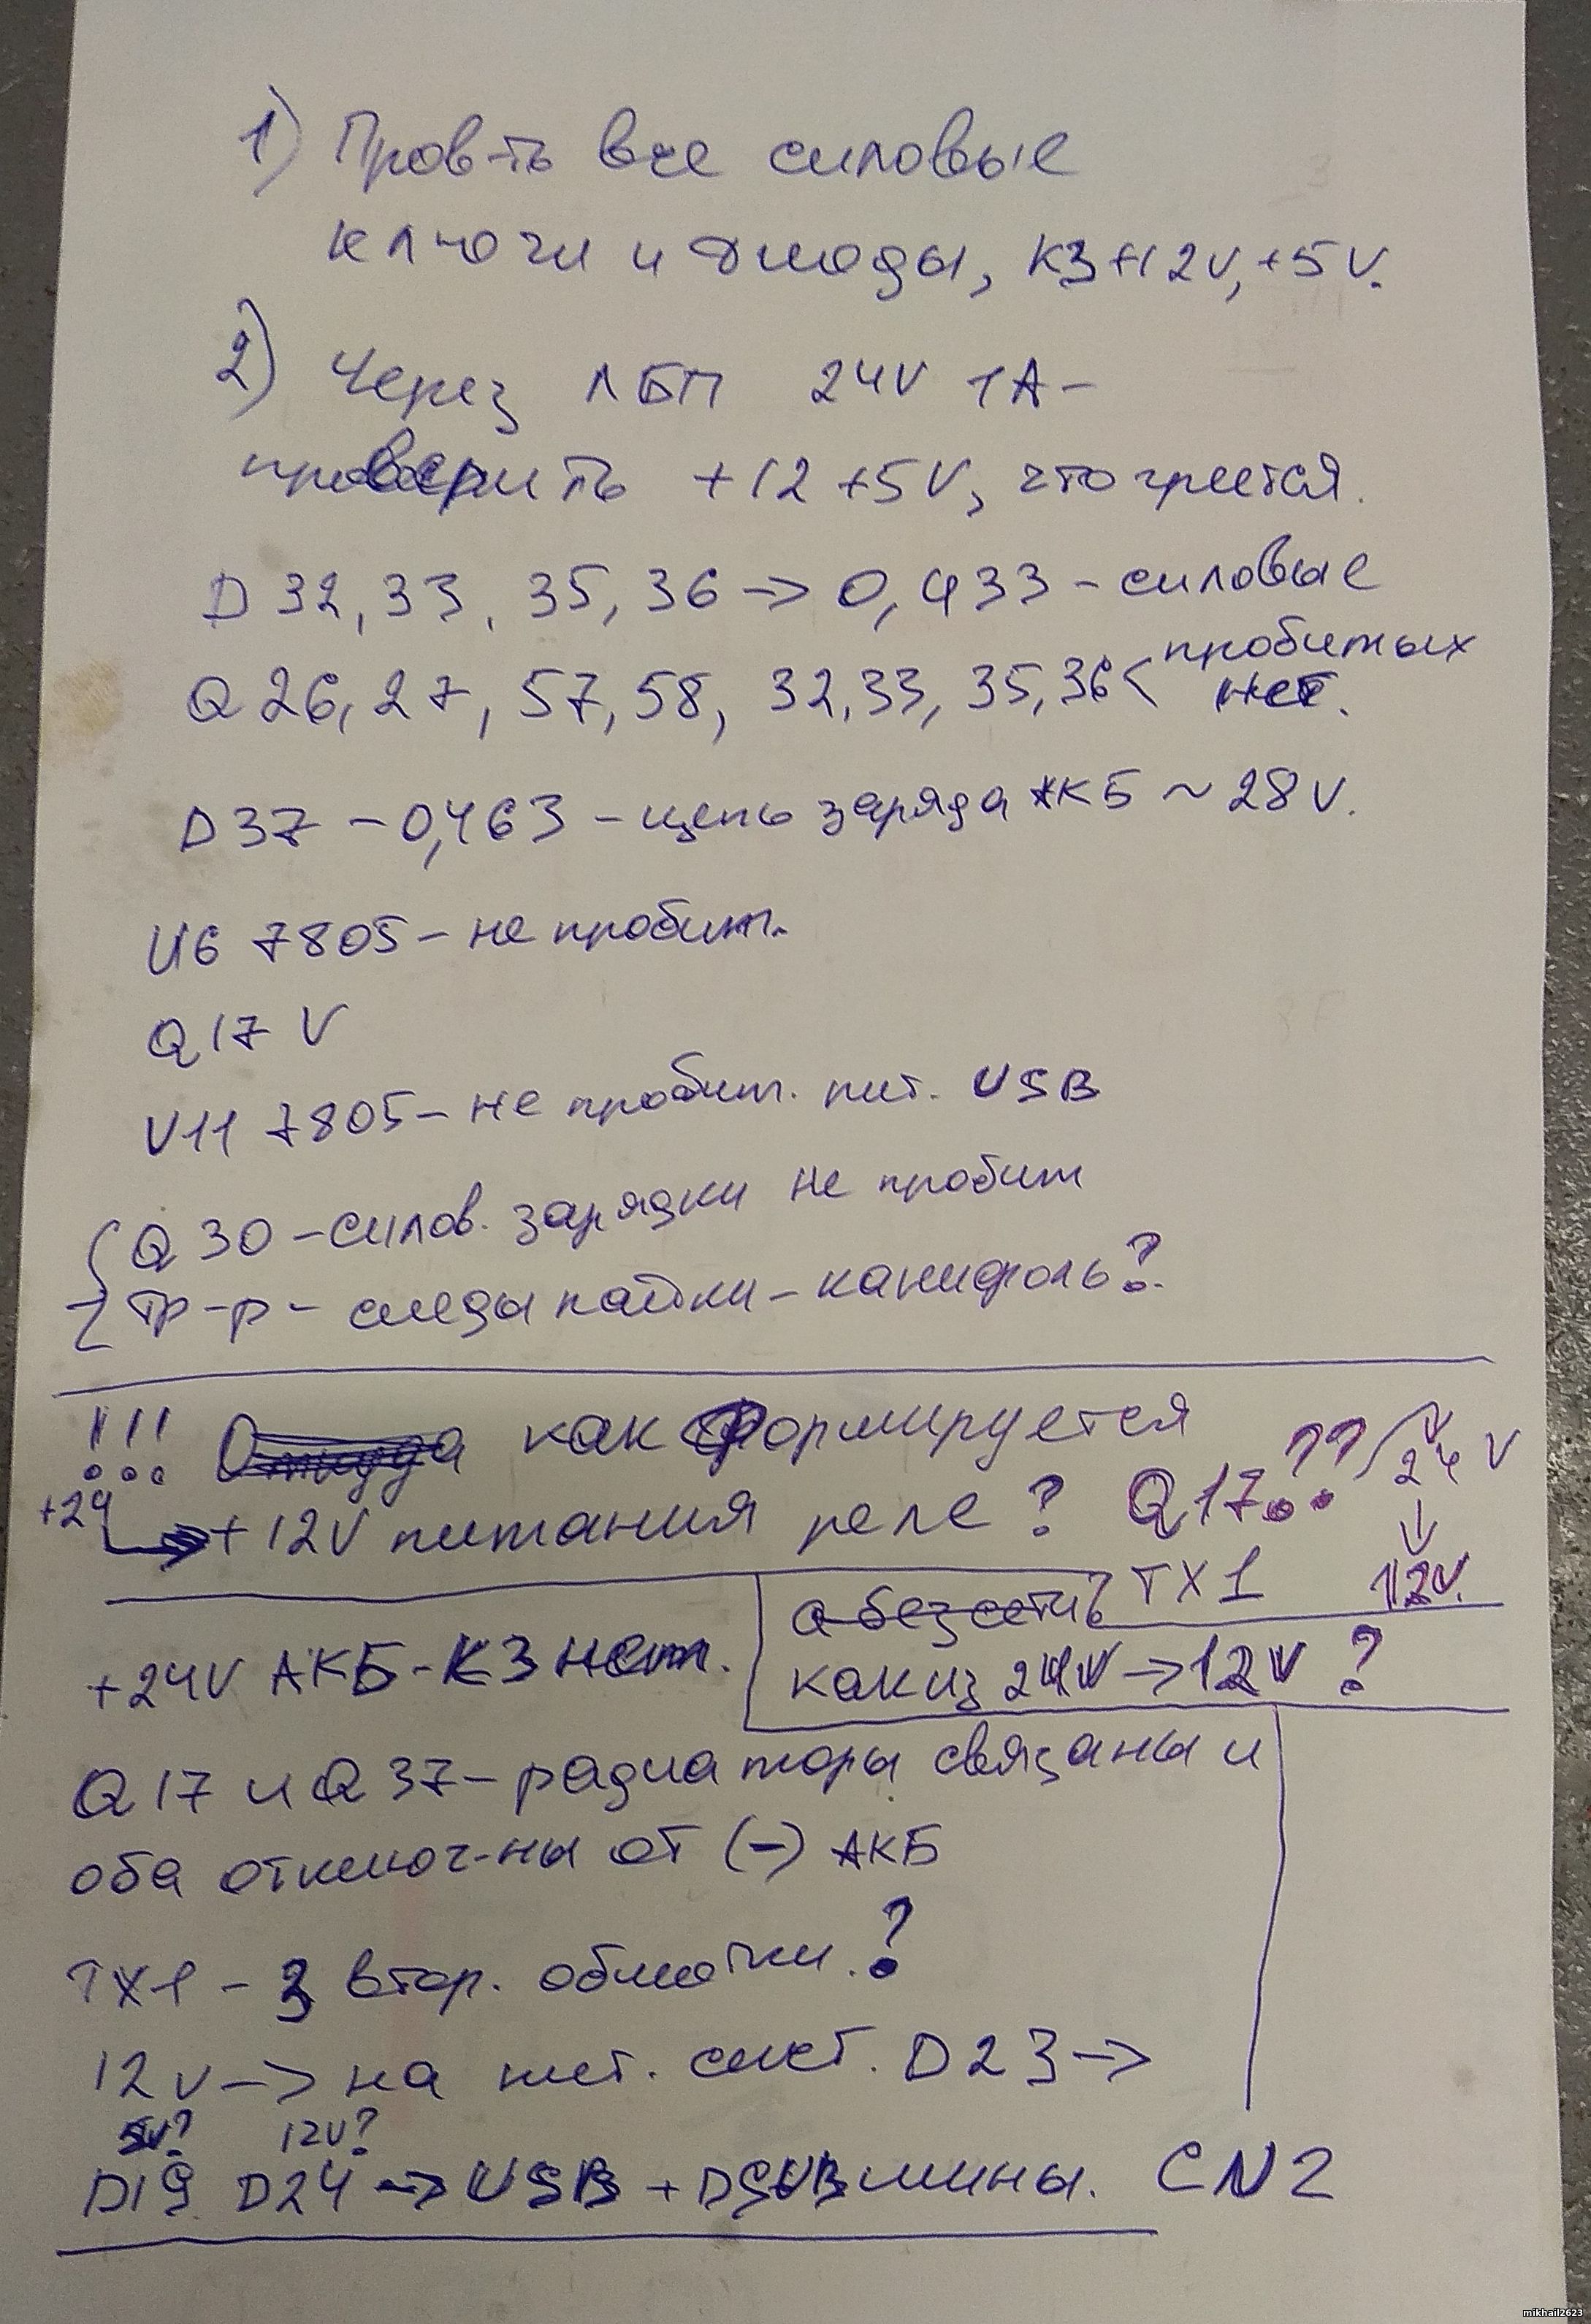 1) Пров-ть все силовые
ключи и диоды, КЗ +12V, +5V.
2) Через ЛБП 24V 1A-
проверить +12 +5V, что греется.
D 32, 33, 35, 36 -> 0,433 - силовые
Q 26, 27, 57, 58, 32, 33, 35, 36 < пробитых
нет.
D 37 - 0,463 - цепь заряда АКБ ~ 28V.
U6 7805 - не пробит.
Q 17 V
U11 7805 - не пробит. пит. USB
Q 30 - силов. зарядки не пробит
тр-р - следы пайки - канифоль?
!!! Откуда как формируется
+24 -> +12V питания реле? Q17?? 24V
-> 12V.
а без сети? TX1
+24V АКБ - КЗ нет.
как из 24V -> 12V ?
Q 17 и Q 37 - радиаторы связаны и
оба отключ-ны от (-) АКБ
TX1 - 3 втор. обмотки.?
12V -> на пит. сист. D23 ->
5V? 12V?
D19 D24 -> USB + DSUB шины. CN2
mikhail2623